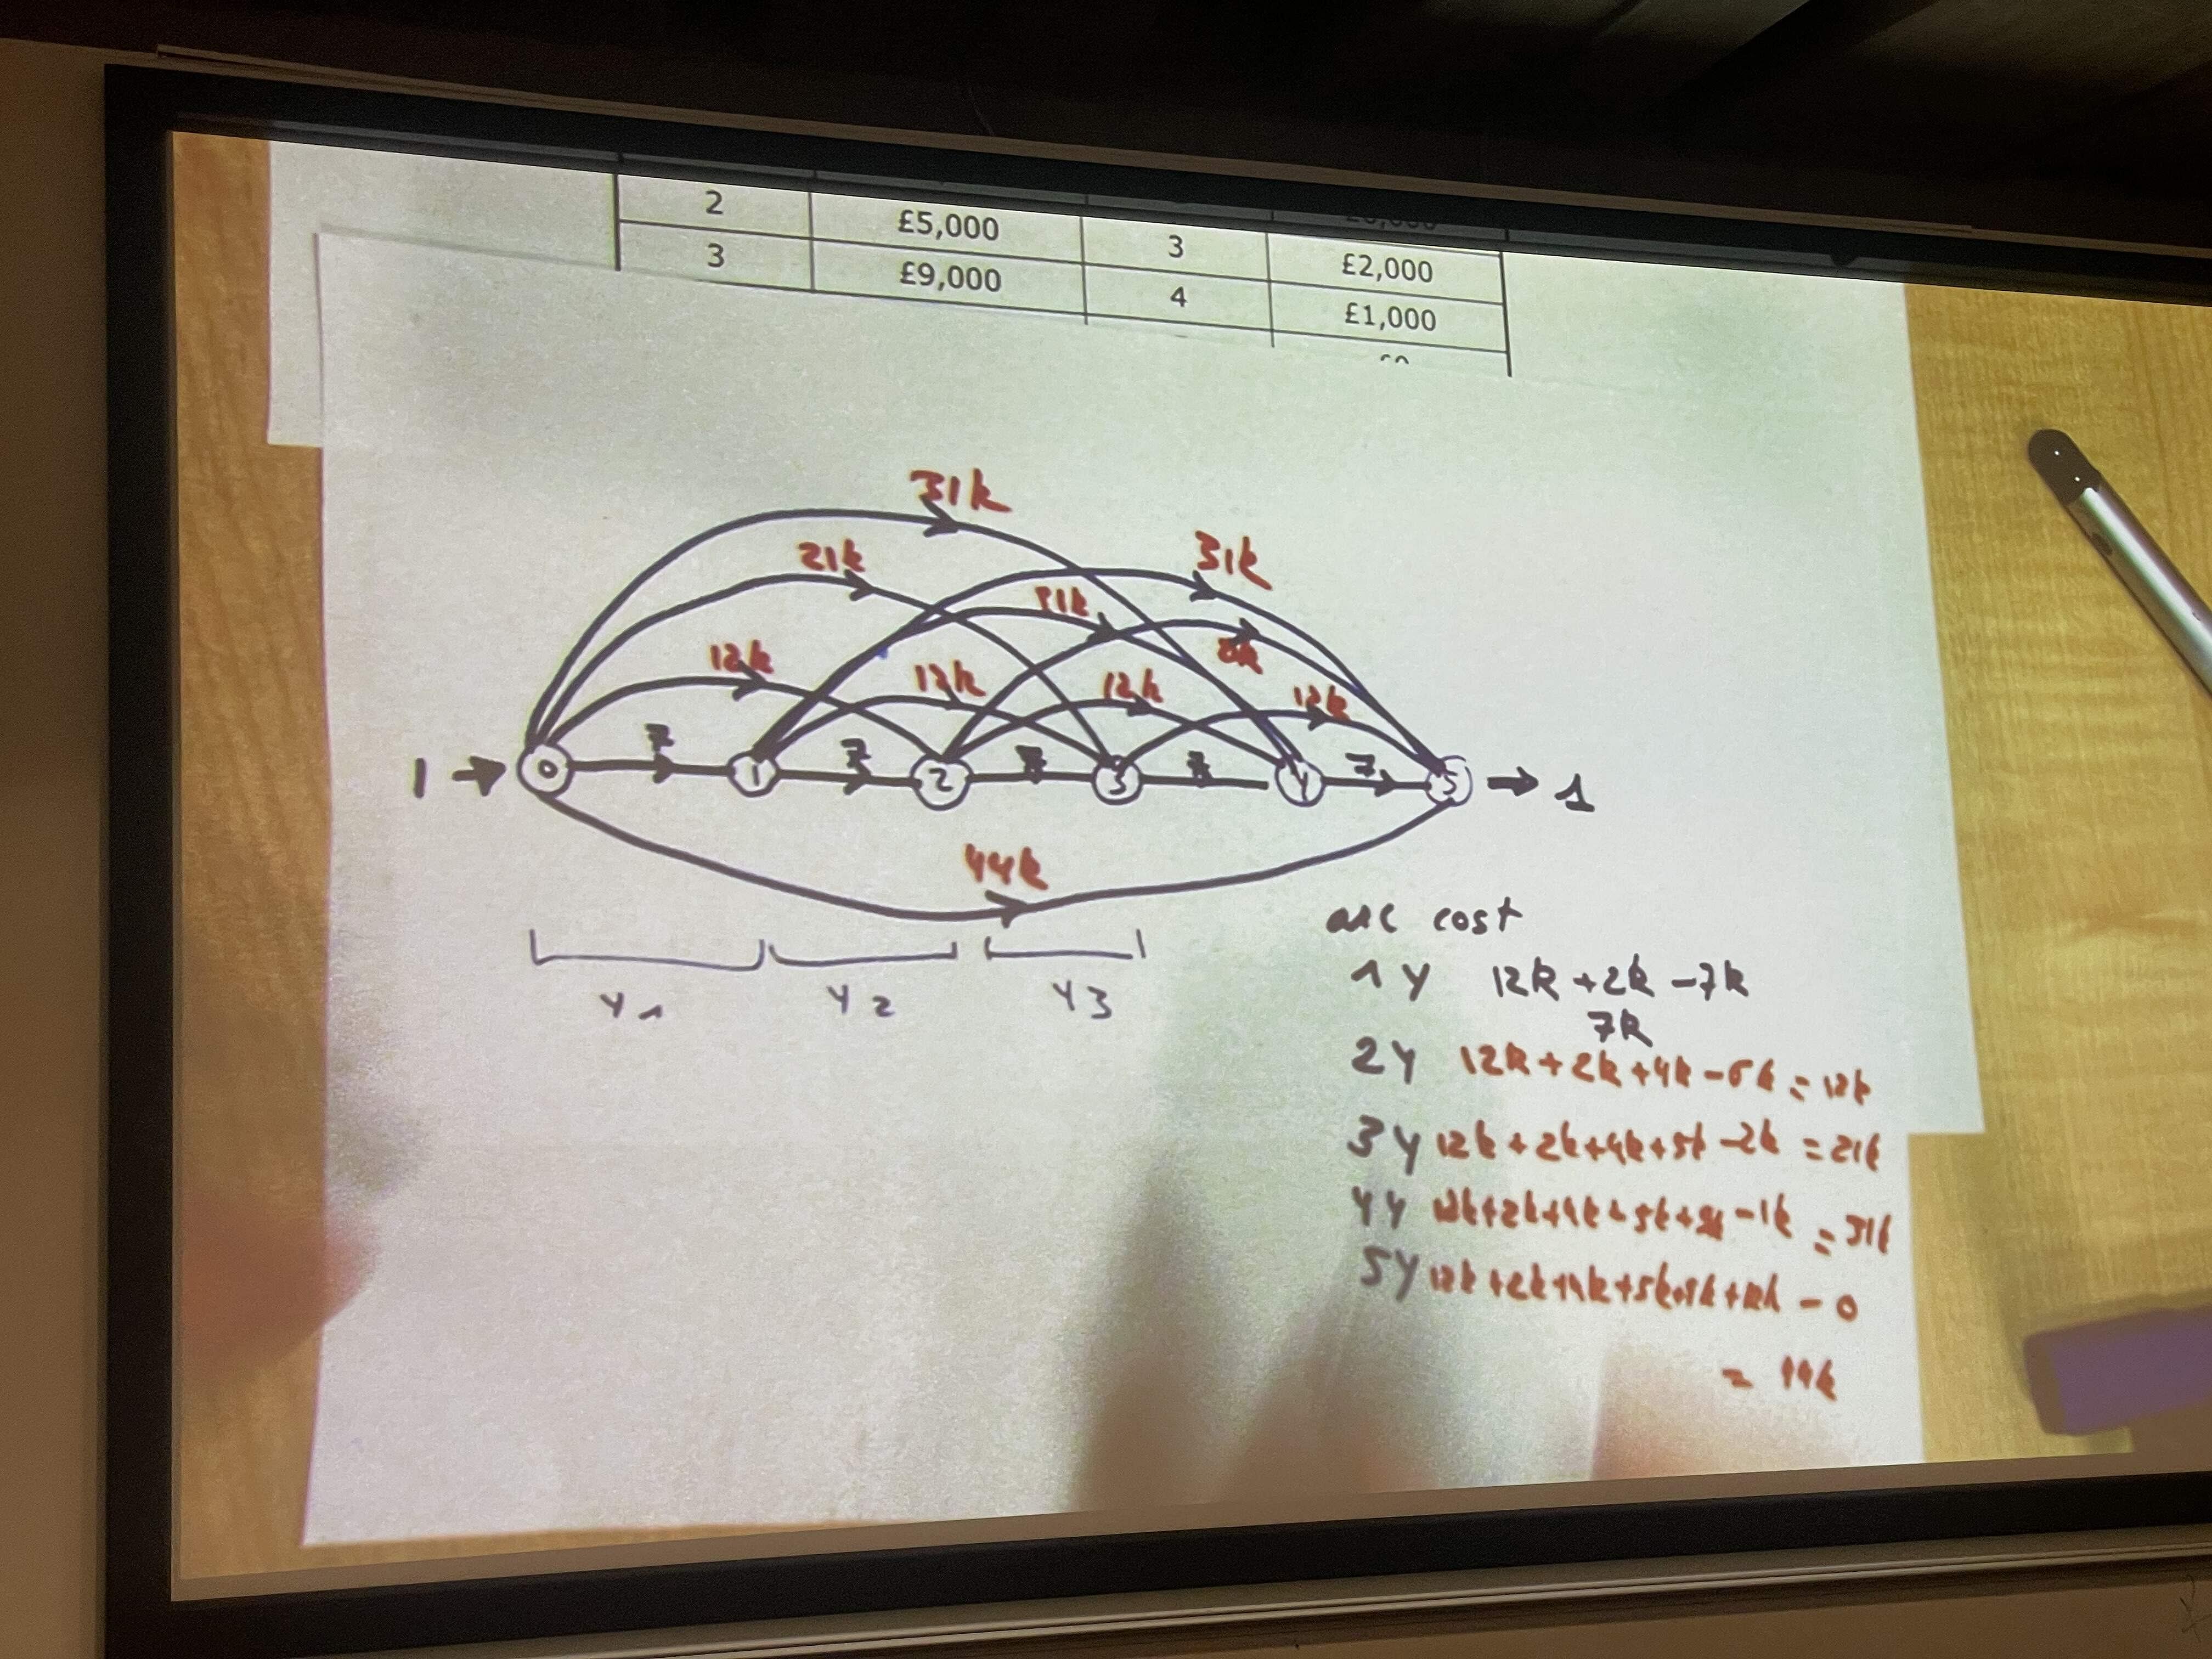 2 £5,000 3 £2,000
3 £9,000 4 £1,000
31k
21k 31k
12k 12k 12k 12k
1 → 0 7 1 7 2 7 3 7 4 7 5 → 1
44k
Y1 Y2 Y3
arc cost
1Y 12k + 2k - 7k
7k
2Y 12k + 2k + 4k - 6k = 12k
3Y 12k + 2k + 4k + 5k - 2k = 21k
4Y 12k + 2k + 4k + 5k + 9k - 1k = 31k
5Y 12k + 2k + 4k + 5k + 9k + 12k - 0
= 44k